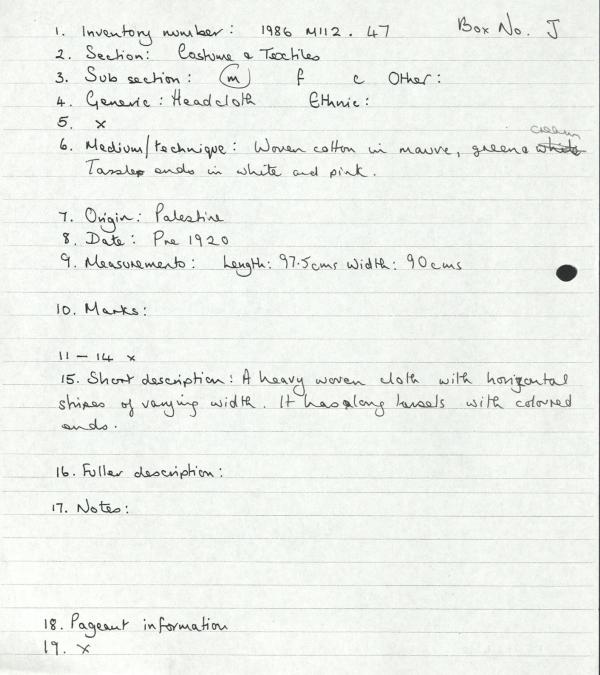 1. Inventory number: 1986 M112.47 Box No. J
2. Section: Costume & Textiles
3. Sub section: m f c Other:
4. Generic: Headcloth Ethnic:
5. x
cream
6. Medium/technique: Woven cotton in mauve, green & white
Tassle ends in white and pink.
7. Origin: Palestine
8. Date: Pre 1920
9. Measurements: Length: 97.5cms Width: 90cms
10. Marks:
11 - 14 x
15. Short description: A heavy woven cloth with horizontal
stripes of varying width. It has long tassels with coloured
ends.
16. Fuller description:
17. Notes:
18. Pageant information
19. x